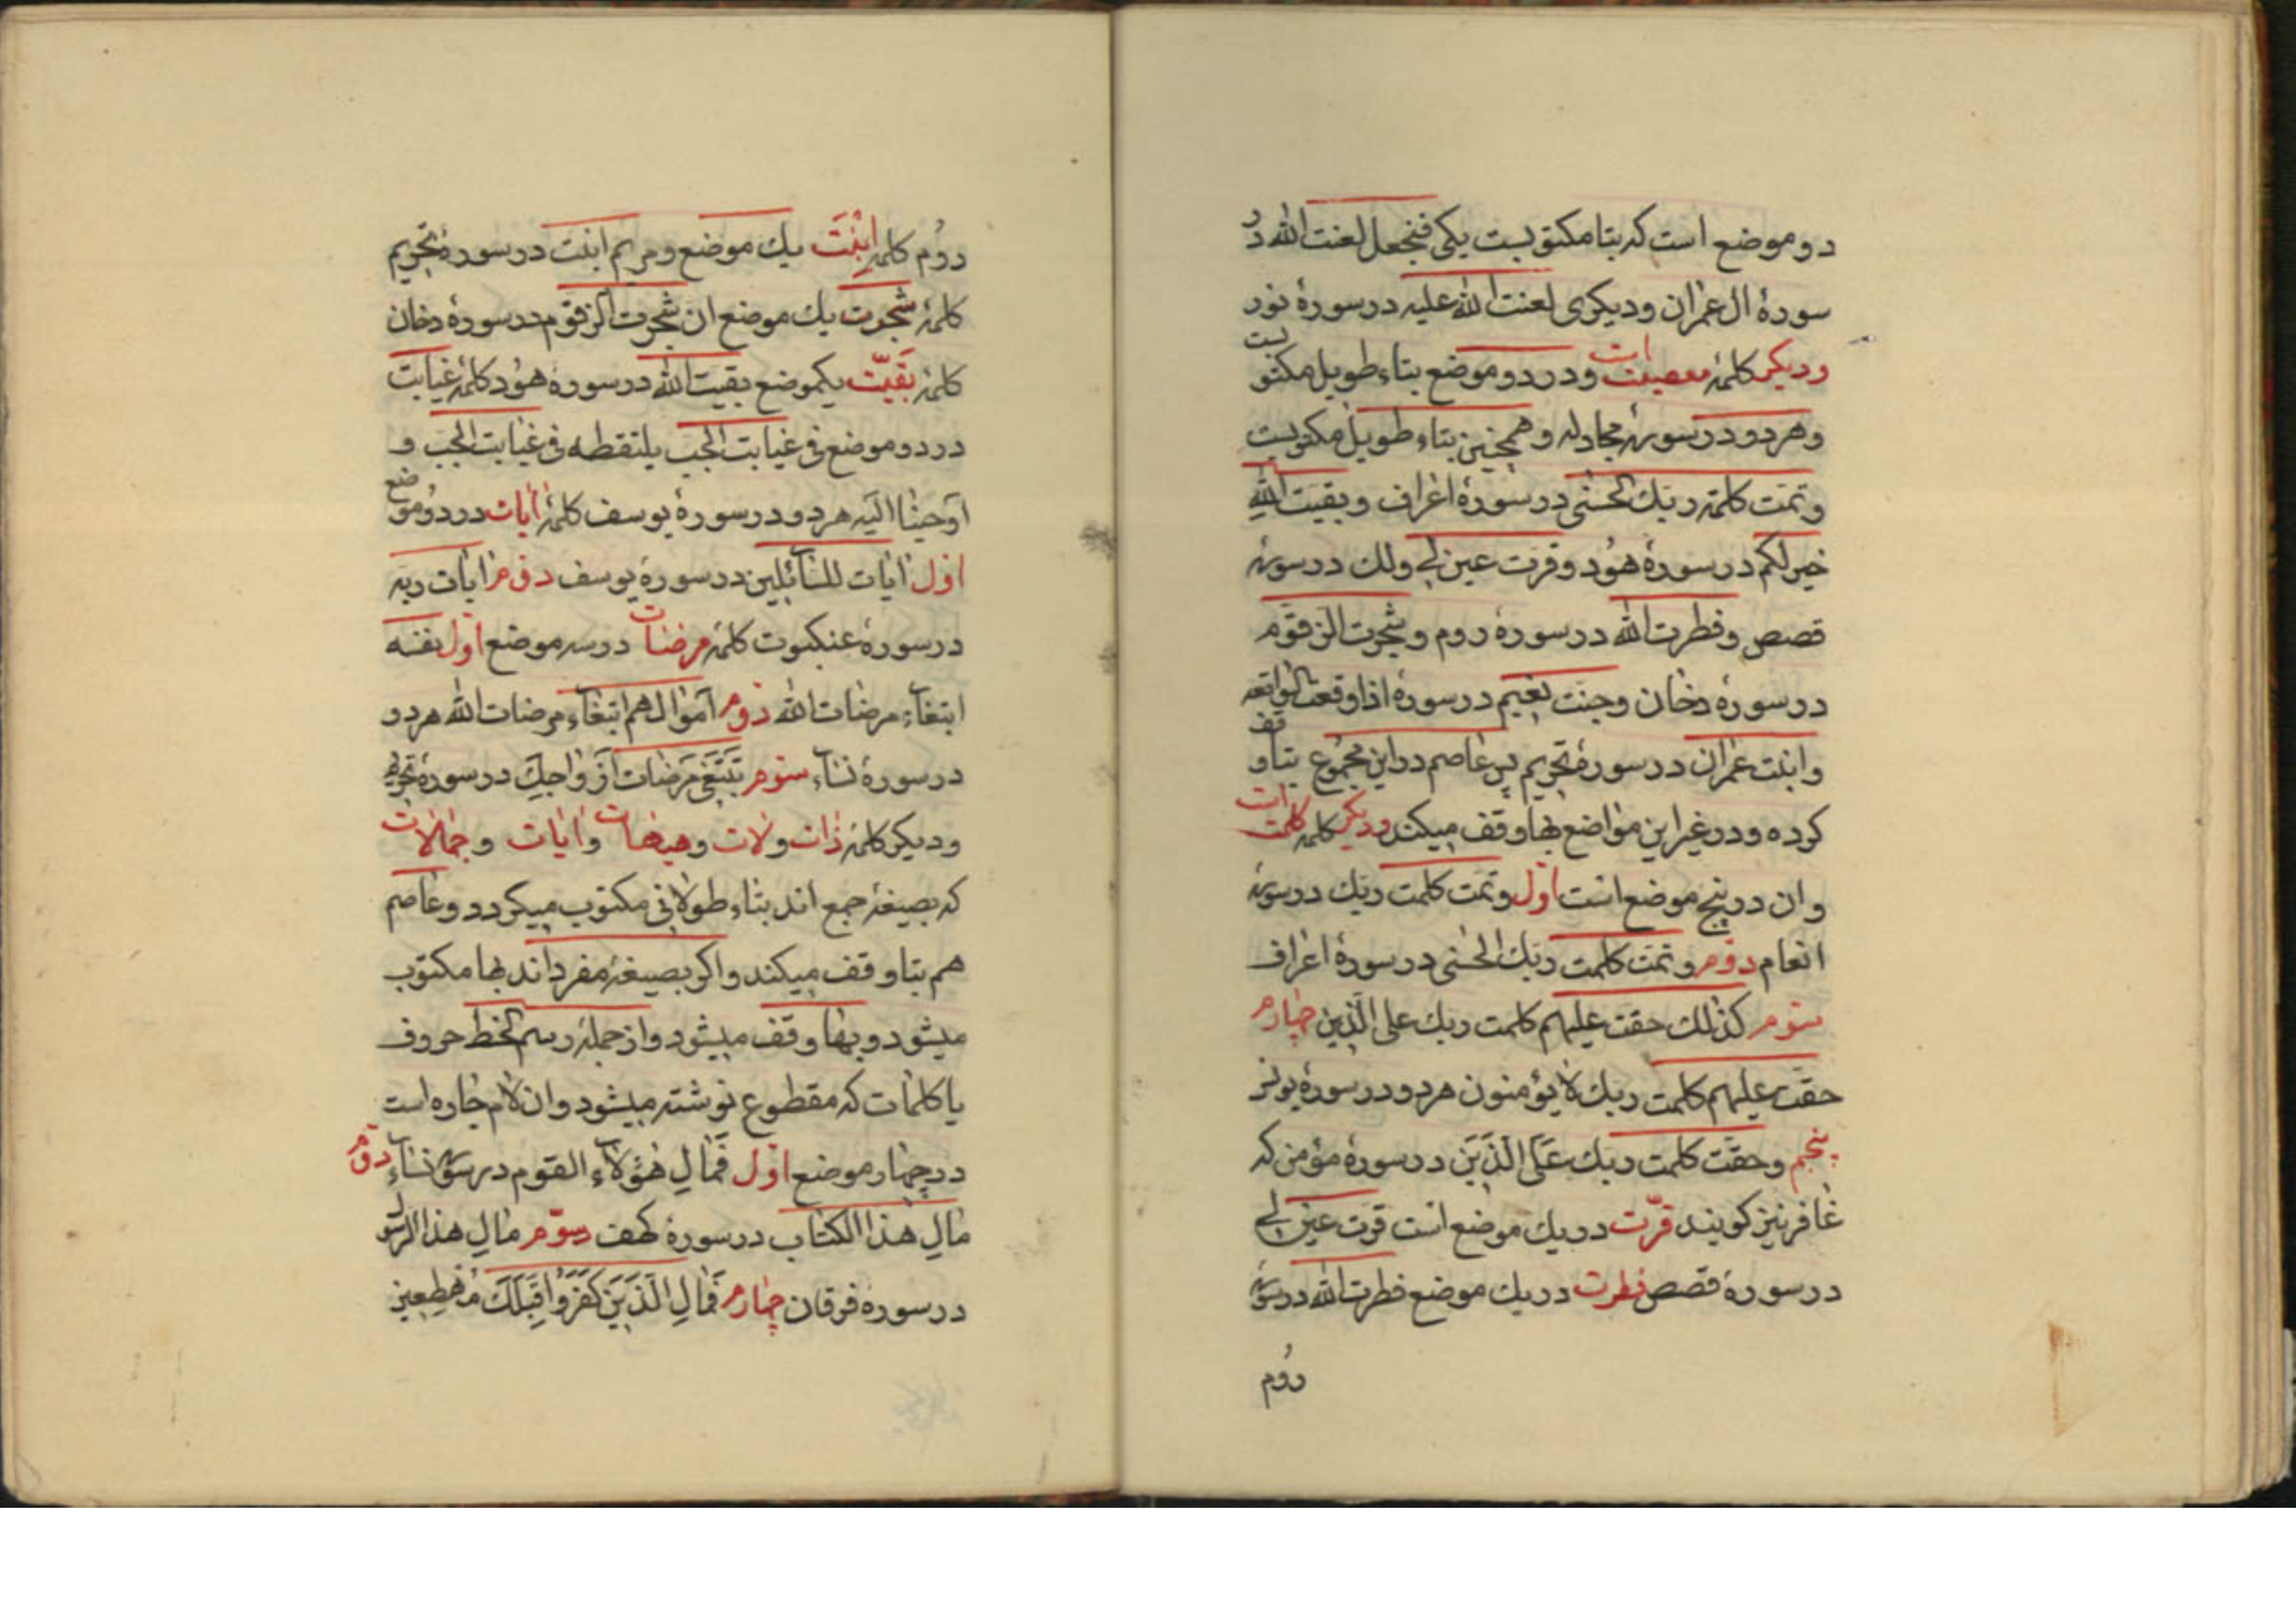 دو موضع است که بتا مکتوبست یکی فنجعل لعنت الله در
سورهٔ ال عمران ودیکری لعنت الله علیه در سورهٔ نور
ودیکر کلمهٔ معصیت ودر دو موضع بتاء طویل مکتوبست
وهر دو در سورهٔ مجادله وهمچنین بتاء طویل مکتوبست
وتمت کلمة ربک الحسنی در سورهٔ اعراف وبقیت الله
خیر لکم در سورهٔ هود وقرت عین لی ولک در سورهٔ
قصص وفطرت الله در سورهٔ روم وشجرت الزقوم
در سورهٔ دخان وجنت نعیم در سورهٔ اذا وقعت الواقعه
وابنت عمران در سورهٔ تحریم پس عاصم در این مجموع بتا وقف
کرده ودر غیر این مواضع بها وقف میکند ودیکر کلمهٔ کلمت
وان در پنج موضع است اول وتمت کلمت ربک در سورهٔ
انعام دوم وتمت کلمت ربک الحسنی در سورهٔ اعراف
سوم کذلک حقت علیهم کلمت ربک علی الذین چهارم
حقت علیهم کلمت ربک لا یؤمنون هر دو در سورهٔ یونس
پنجم وحقت کلمت ربک علی الذین در سورهٔ مؤمن که
غافر نیز کویند قرّت در یک موضع است قرت عین لی
در سورهٔ قصص فطرت در یک موضع فطرت الله در سورهٔ
روم
روم کلمهٔ ابنت یک موضع ومریم ابنت در سورهٔ تحریم
کلمهٔ شجرت یک موضع ان شجرت الزقوم در سورهٔ دخان
کلمهٔ بقیّت یکموضع بقیت الله در سورهٔ هود کلمهٔ غیابت
در دو موضع فی غیابت الجب یلتقطه فی غیابت الجب و
اوحینا الیه هر دو در سورهٔ یوسف کلمهٔ ایات در دو موضع
اول ایات للسائلین در سورهٔ یوسف دوم ایات ربه
در سورهٔ عنکبوت کلمهٔ مرضات در سه موضع اول نفسه
ابتغاء مرضات الله دوم اموالهم ابتغاء مرضات الله هر دو
در سورهٔ نساء سوم تبتغی مرضات ازواجک در سورهٔ تحریم
ودیکر کلمهٔ ذات ولات وهیهات وایات وجمالات
که بصیغهٔ جمع اند بتاء طولانی مکتوب میکردد وعاصم
هم بتا وقف میکند واکر بصیغهٔ مفرد اند بها مکتوب
میشود وبها وقف میشود واز جملهٔ رسم الخط حروف
یا کلمات که مقطوع نوشته میشود وان لام جاره است
در چهار موضع اول فمال هؤلاء القوم در سورهٔ نساء دوم
مال هذا الکتاب در سورهٔ کهف سوم مال هذا الرسول
در سورهٔ فرقان چهارم فمال الذین کفروا قبلک مهطعین